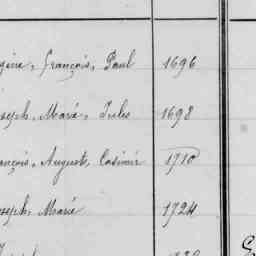 gène, François, Paul 1696
seph, Marie, Jules 1698
ançois, Auguste, Casimir 1710
oseph, Marie 1724